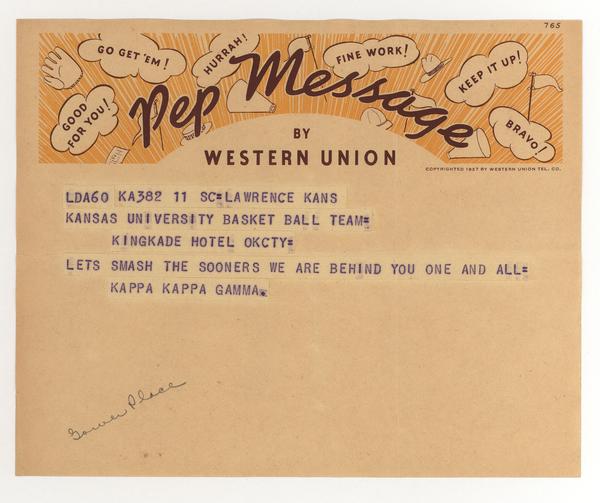 765
GO GET 'EM!
HURRAH!
FINE WORK!
KEEP IT UP!
GOOD FOR YOU!
BRAVO!
Pep Message
BY
WESTERN UNION
COPYRIGHTED 1937 BY WESTERN UNION TEL. CO.
LDA60 KA382 11 SC=LAWRENCE KANS
KANSAS UNIVERSITY BASKET BALL TEAM=
KINGKADE HOTEL OKCTY=
LETS SMASH THE SOONERS WE ARE BEHIND YOU ONE AND ALL=
KAPPA KAPPA GAMMA.
Gower Place